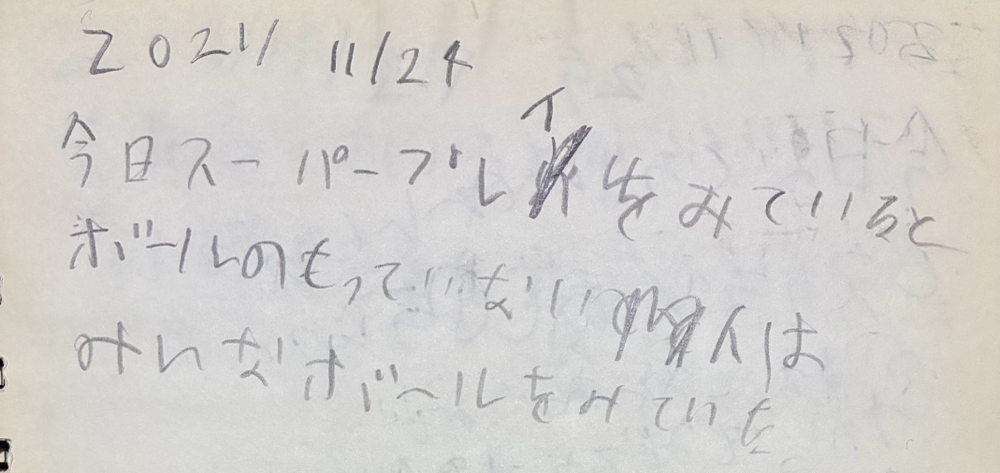 2021 11/24
今日スーパープレイをみていると
ボールのもっていない人は
みんなボールをみていも